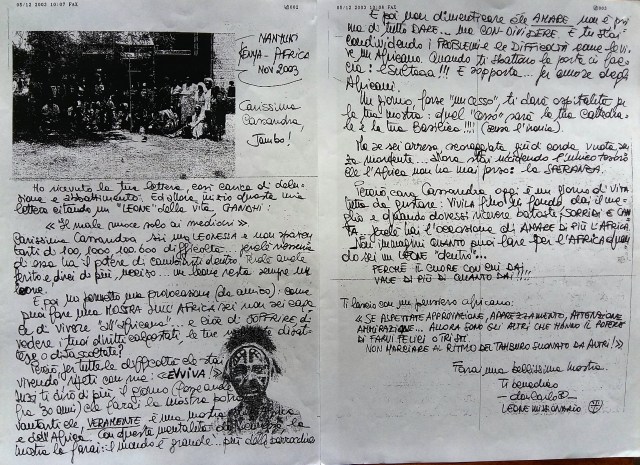 05/12 2003 10:07 FAX
002
NANYUKI
KENYA - AFRICA
NOV 2003
Carissima
Cassandra,
Jambo!
Ho ricevuto la tua lettera, così carica di delu-
sione e abbattimento. Ed allora inizio questa mia
lettera citando un "LEONE" della vita, GANDHI:
« Il male nuoce solo ai mediocri ».
Carissima Cassandra sei una LEONESSA e non spaven-
tarti di 100, 1000, 100.000 difficoltà... perché nessuna
di essa ha il potere di cambiarti dentro.
e direi di più un leone resta sempre un
leone.
E poi ho permetto una provocazione (da amico): come
puoi fare una MOSTRA sull'AFRICA se non sei capa-
ce di vivere "all'africana"... e cioè di SOFFRIRE di
vedere i tuoi diritti calpestati le tue
o
Perciò per tutte le difficoltà che stai
vivendo ripeti con me: «EVVIVA!»
di più. Il giorno
fra 30 anni) che farai la mostra potrai
vantarti che VERAMENTE è una mostra
e dell'Africa. Con questa mentalità
mostra la farai: il mondo è grande... più della
05/12 2003 10:08 FAX
003
E poi non dimenticare che AMARE non è pri-
ma di tutto DARE... ma CONDIVIDERE. E tu stai
condividendo i PROBLEMI e le DIFFICOLTÀ come fa vive-
re un Africano. Quando ti sbattono la porta in fac-
cia: esulta!!! E sopporta... per amore degli
Africani.
Un giorno, forse "un cesso", ti darà ospitalità per
la tua mostra: quel "cesso" sarà la tua Cattedra-
le e la tua Basilica !!!! (senza l'ironia).
Ma se sei arresa, scoraggiata, giù di corda, vuota sen-
za mordente... allora stai uccidendo l'unico tesoro
che l'Africa non ha mai perso: la SPERANZA.
Perciò cara Cassandra, oggi è un giorno di vita
da gustare: VIVILA fino in fondo, dai il me-
glio e quando dovessi ricevere batoste, SORRIDI E CAN-
TA perché hai l'occasione di AMARE DI PIÙ L'AFRICA.
Non immagini QUANTO puoi fare per l'AFRICA quan-
do sei un LEONE "dentro"...
PERCHÉ IL CUORE CON CUI DAI
VALE DI PIÙ DI QUANTO DAI!!!!
Ti lascio con un pensiero africano:
« SE ASPETTATE APPROVAZIONE, APPREZZAMENTO, ATTENZIONE
AMMIRAZIONE... ALLORA SONO GLI ALTRI CHE HANNO IL POTERE
DI FARVI FELICI O TRISTI.
NON MARCIARE AL RITMO DEL TAMBURO SUONATO DA ALTRI! »
Farai una bellissima mostra.
Ti benedico
- don Carlo -
LEONE MISSIONARIO